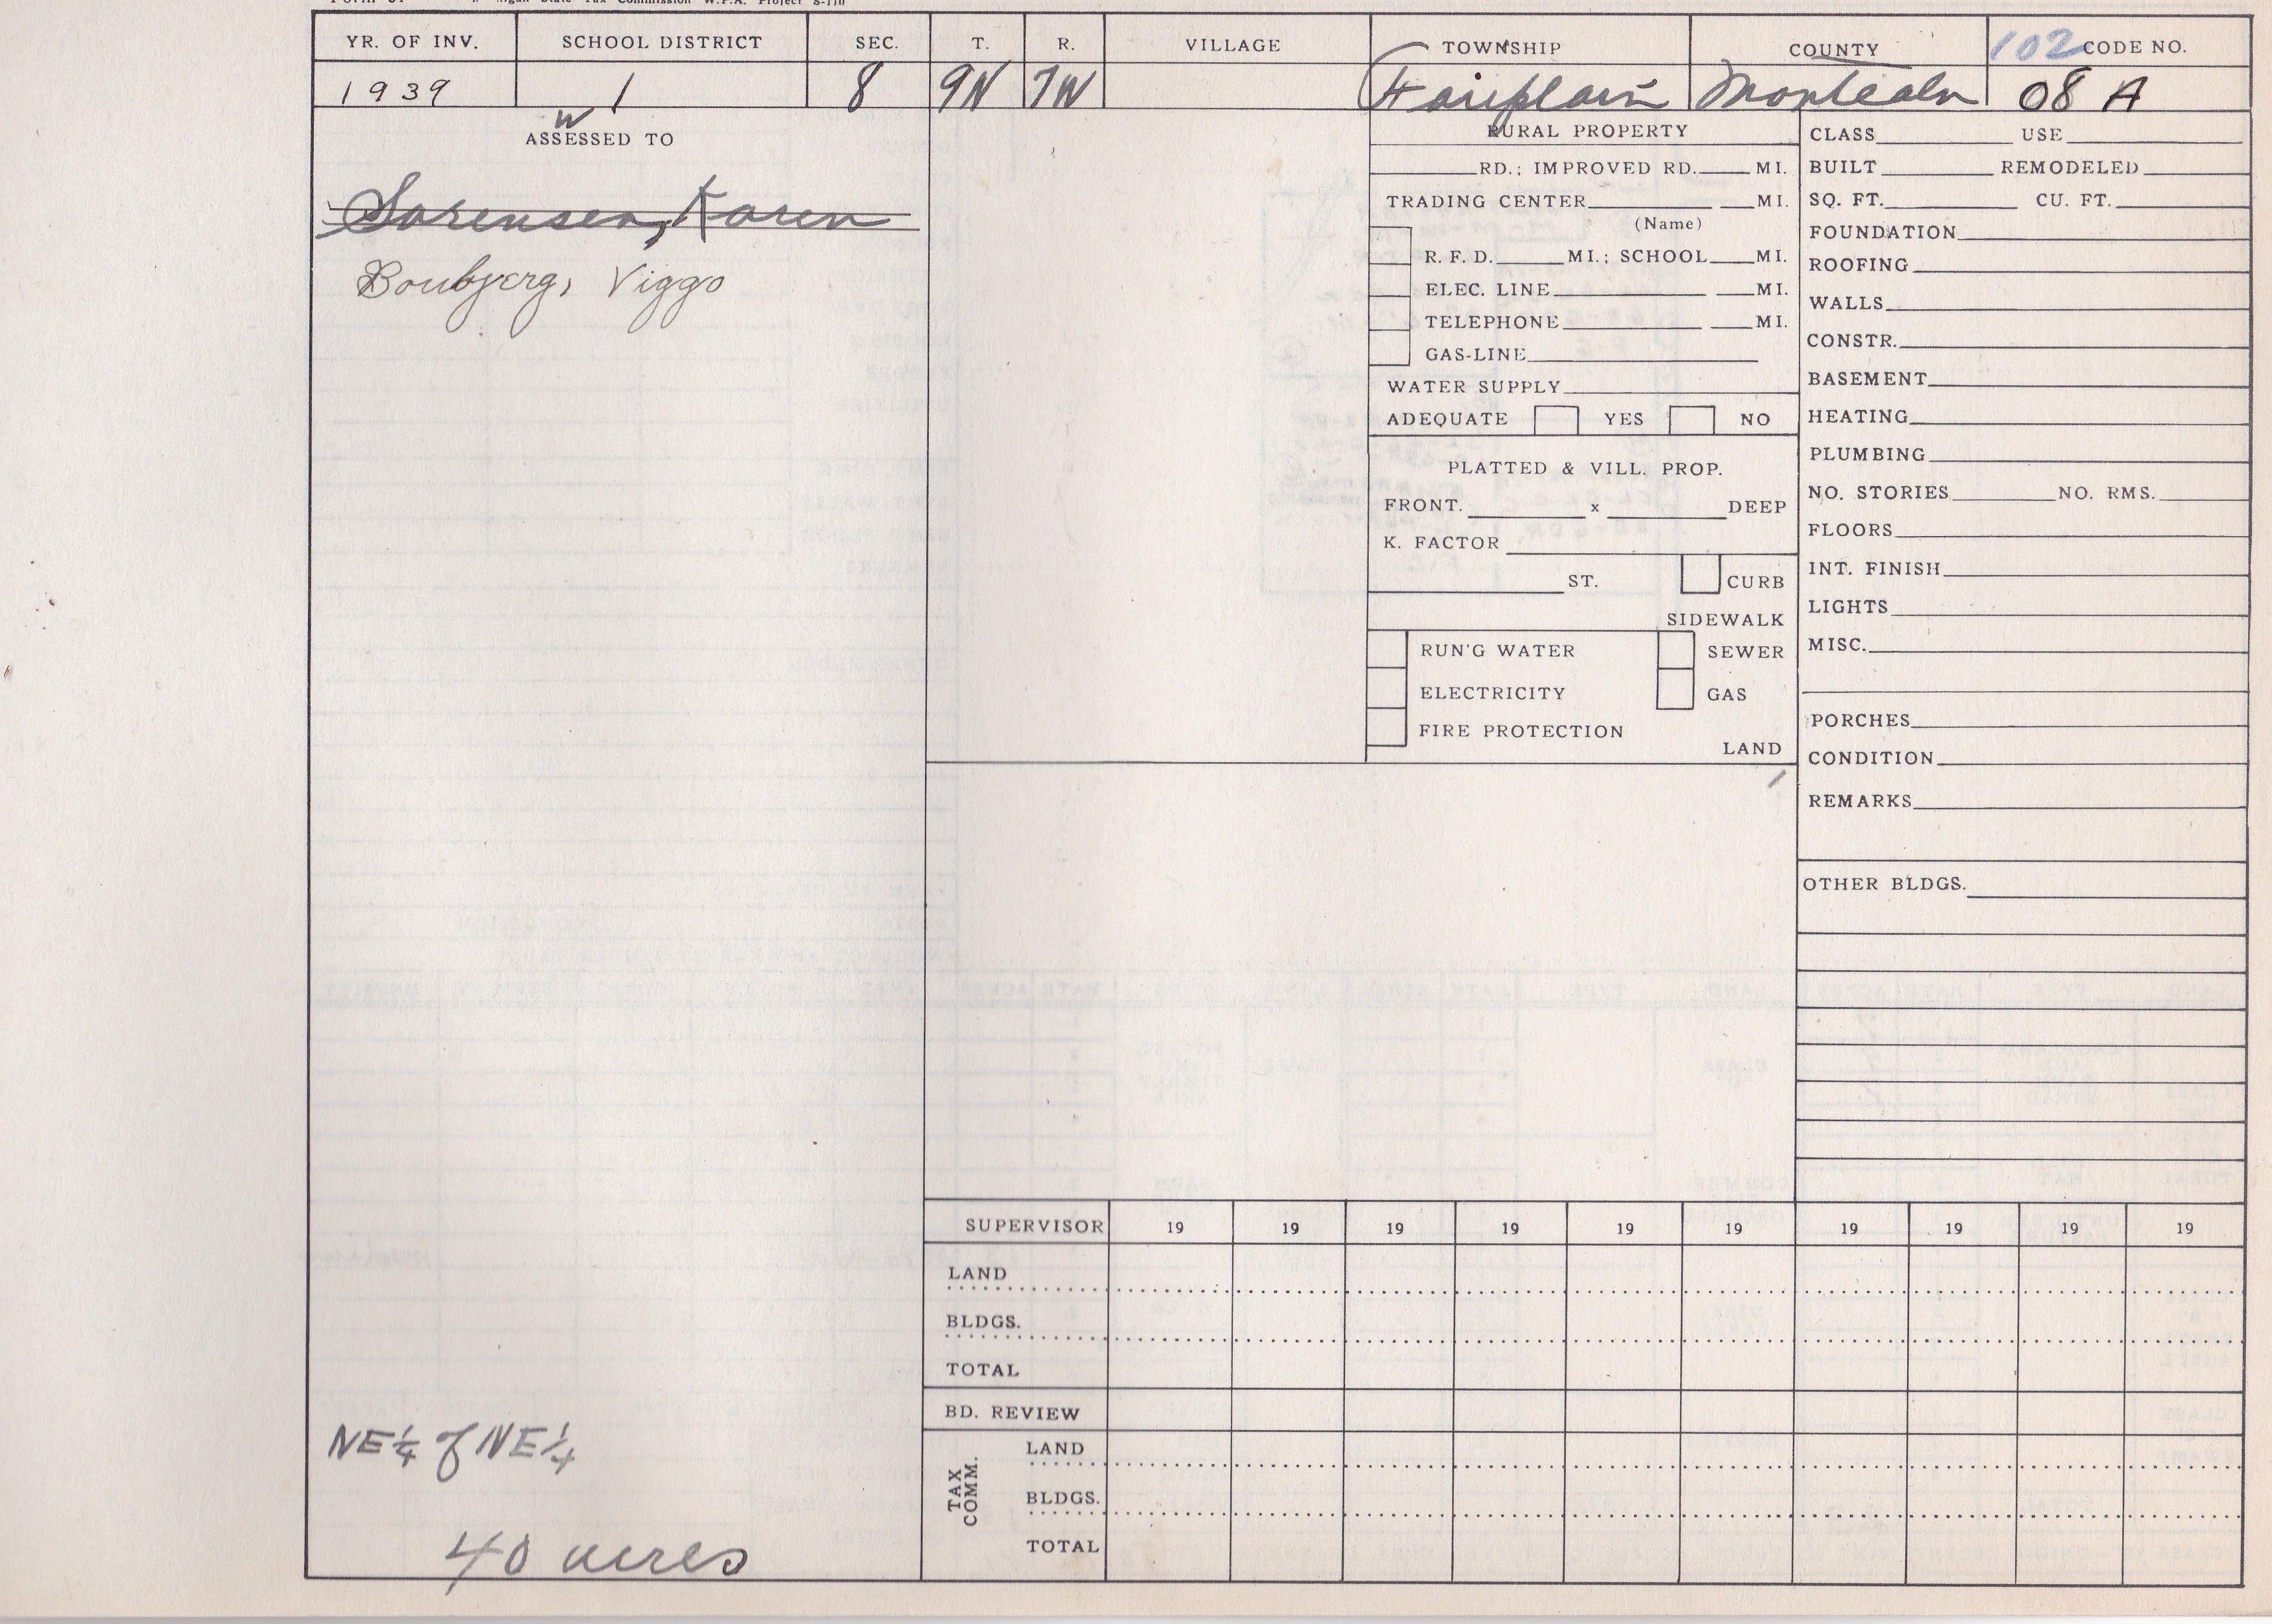 Michigan State Tax Commission W.P.A. Project S-170
YR. OF INV. SCHOOL DISTRICT SEC. T. R. VILLAGE TOWNSHIP COUNTY 102 CODE NO.
1939 1 8 9N 7W Fairplain Montcalm 08 A
W
ASSESSED TO
Sorensen, Karen
Boubjerg, Viggo
NE 1/4 of NE 1/4
40 acres
RURAL PROPERTY
RD.; IMPROVED RD. MI.
TRADING CENTER MI.
(Name)
R. F. D. MI.; SCHOOL MI.
ELEC. LINE MI.
TELEPHONE MI.
GAS-LINE
WATER SUPPLY
ADEQUATE YES NO
PLATTED & VILL. PROP.
FRONT. x DEEP
K. FACTOR
ST. CURB
SIDEWALK
RUN'G WATER SEWER
ELECTRICITY GAS
FIRE PROTECTION
LAND
CLASS USE
BUILT REMODELED
SQ. FT. CU. FT.
FOUNDATION
ROOFING
WALLS
CONSTR.
BASEMENT
HEATING
PLUMBING
NO. STORIES NO. RMS.
FLOORS
INT. FINISH
LIGHTS
MISC.
PORCHES
CONDITION
REMARKS
OTHER BLDGS.
SUPERVISOR 19 19 19 19 19 19 19 19 19 19
LAND
BLDGS.
TOTAL
BD. REVIEW
TAX COMM.
LAND
BLDGS.
TOTAL